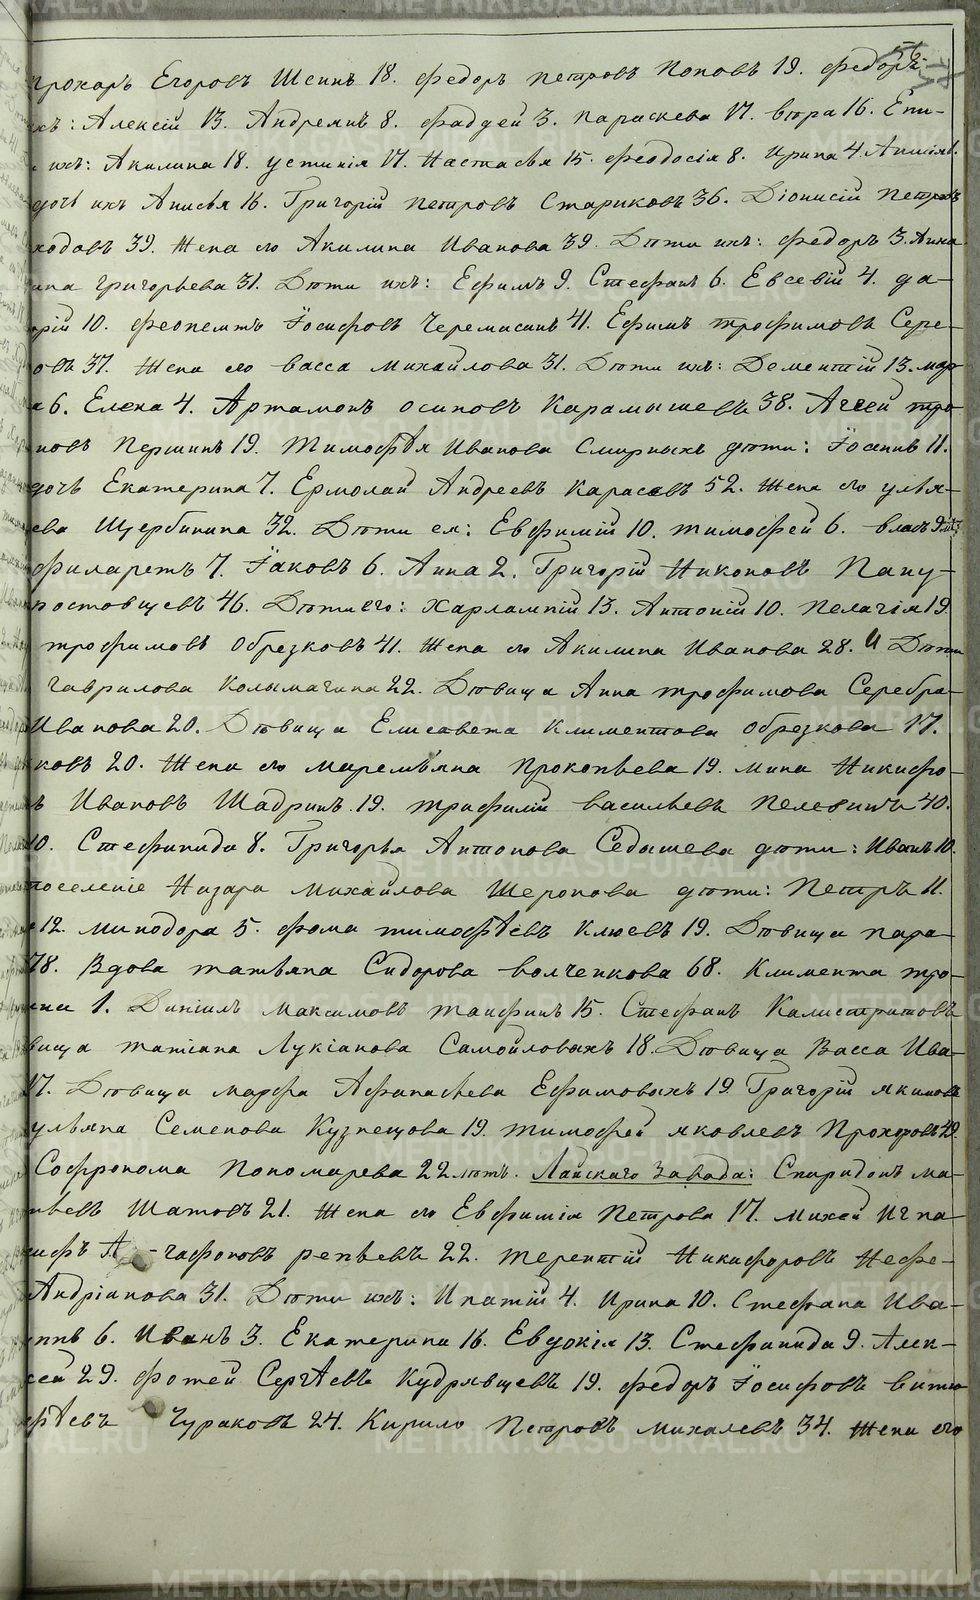 56.
прохоръ Егоровъ Шеинъ 18. Федоръ петровъ Поповъ 19. Федоръ
хъ: Алексій 13. Андреянъ 8. фаддей 3. параскева 17. вѣра 16. Епи-
ихъ: Акилина 18. устинія 17. Настасья 15. феодосія 8. ирина 4. Анисія 1.
дочь ихъ Анисья 16. Григорій петровъ Стариковъ 36. Діонисій Петровъ
ходовъ 39. Жена его Акилина Иванова 39. Дѣти ихъ: Федоръ 3. Анна
ина григорьева 31. Дѣти ихъ: Ефимъ 9. Стефанъ 6. Евсевій 4. да-
рій 10. феопемтъ Іосифовъ Черемисинъ 41. Ефимъ трофимовъ Сере-
овъ 37. Жена его васса михайлова 31. Дѣти ихъ: Дементій 13. мар-
а 6. Елена 4. Артамонъ осиповъ Карамышевъ 38. Агѣей про-
повъ Першинъ 19. Тимофѣя Иванова Смирныхъ дѣти: Іосипъ 11.
дочь Екатерина 7. Ермолай Андреевъ Карасевъ 52. Жена его улья-
ева Щербинина 32. Дѣти ея: Евфимій 10. тимофей 6. власъ 9 м.
филаретъ 7. Іаковъ 6. Анна 2. Григорій Никоновъ Пану-
ростовщевъ 46. Дѣти его: харлампій 13. Антоній 10. пелагія 19.
трофимовъ обрезковъ 41. Жена его Акилина Иванова 28. и Дѣти
гаврилова Колымагина 22. Дѣвица Анна трофимова Серебря-
Иванова 20. Дѣвица Елисавета Климентова обрезкова 17.
ковъ 20. Жена его маремьяна прокопьева 19. мина Никифо-
въ Ивановъ Шадринъ 19. трифилій васильевъ пелевинъ 40.
10. Стефанида 8. Григорья Антонова Седышева дѣти: Иванъ 10.
поселеніе Назара михайлова Шеронова дѣти: Петръ 11.
12. минодора 5. фома тимофѣевъ Клюевъ 19. Дѣвица пара-
78. Вдова татьяна Сидорова волченкова 68. Климента тро-
ина 1. Даніилъ максимовъ Танфинъ 15. Стефанъ Калистратовъ
вица татіана Лукіанова Самойловыхъ 18. Дѣвица Васса Ива-
17. Дѣвица марфа Афанасьева Ефимовыхъ 19. Григорій якимовъ
ульяна Семенова Кузнецова 19. тимофей яковлевъ Прохоровъ 49.
Софронома пономарева 22 лѣтъ. Лайскаго Завода: Спиридонъ ма-
ньевъ Шатовъ 21. Жена его Евфимія Петрова 17. михей Игна-
сифъ Агафоновъ репьевъ 22. терентій Никифоровъ Нефе-
Андріанова 31. Дѣти ихъ: Ипатій 4. Ирина 10. Стефана Ива-
ннъ 6. Иванъ 3. Екатерина 16. Евдокія 13. Стефанида 9. Алек-
сей 29. фотей Сергѣевъ Кудрявцевъ 19. федоръ Іосифовъ витю-
фѣевъ Чураковъ 24. Кирило Петровъ михалевъ 34. Жена его